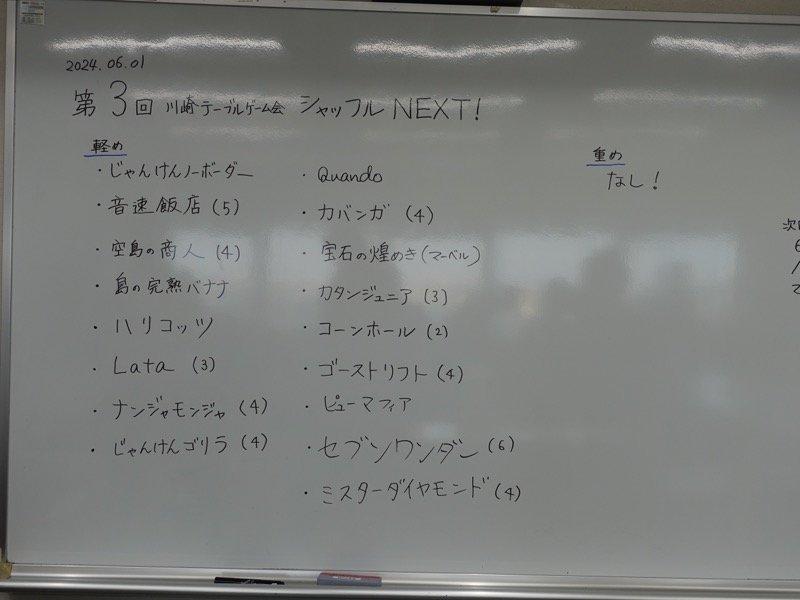 2024.06.01
第3回 川崎テーブルゲーム会 シャッフルNEXT!
軽め
・じゃんけんノーボーダー
・音速飯店(5)
・空島の商人(4)
・島の完熟バナナ
・ハリコッツ
・Lata (3)
・ナンジャモンジャ(4)
・じゃんけんゴリラ(4)
・Quando
・カバンガ(4)
・宝石の煌めき(マーベル)
・カタンジュニア(3)
・コーンホール(2)
・ゴーストリフト(4)
・ピューマフィア
・セブンワンダン(6)
・ミスターダイヤモンド(4)
重め
なし!